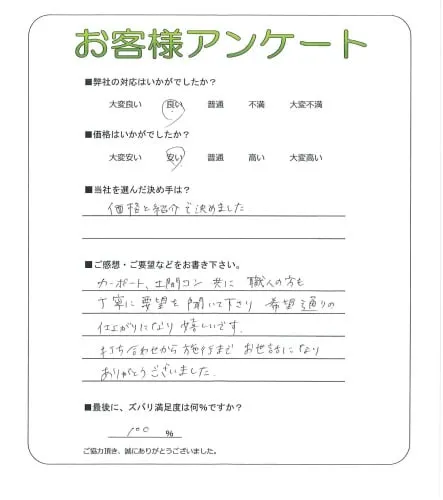 お客様アンケート
■弊社の対応はいかがでしたか？
大変良い 良い 普通 不満 大変不満
■価格はいかがでしたか？
大変安い 安い 普通 高い 大変高い
■当社を選んだ決め手は？
価格と紹介で決めました
■ご感想・ご要望などをお書き下さい。
カーポート、土間コン 共に 職人の方も
丁寧に要望を聞いて下さり 希望通りの
仕上がりになり 嬉しいです。
打ち合わせから施行まで お世話になり
ありがとうございました.
■最後に、ズバリ満足度は何%ですか？
100 %
ご協力頂き、誠にありがとうございました。